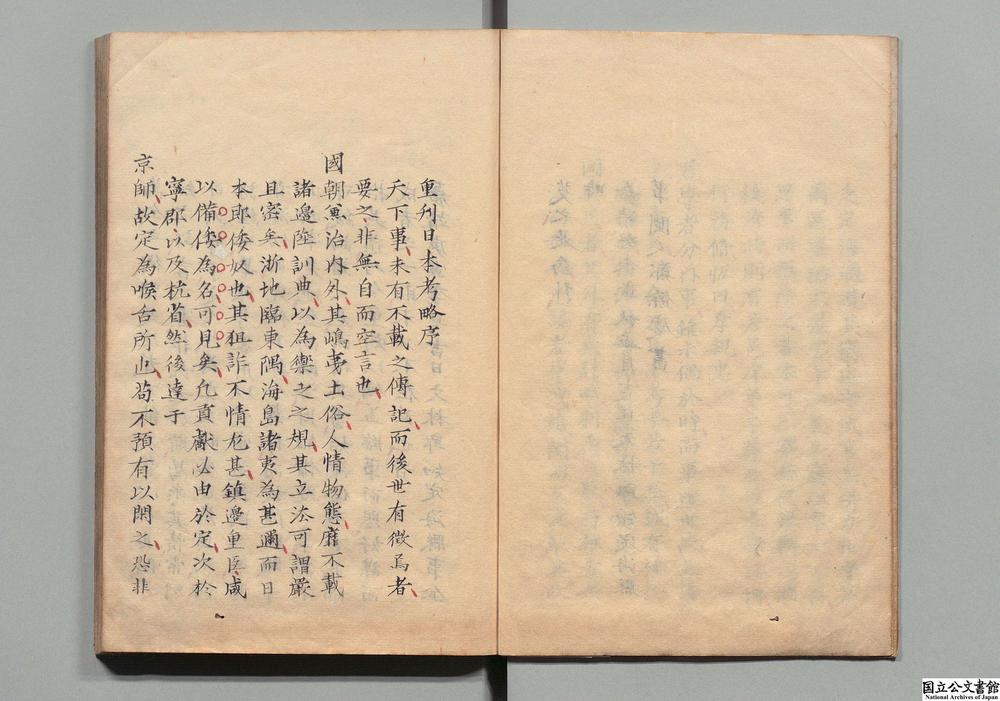 重刊日本考略序
天下事未有不載之傳記而後世有徵焉者
要之非無自而空言也
國朝兼治內外其嶋夷土俗人情物態靡不載
諸邊陲訓典以為禦之之規其立法可謂嚴
且密矣浙地臨東隅海島諸夷為甚邇而日
本郎倭奴也其狙詐不情尤甚鎮邊重臣咸
以備倭為名可見矣凡貢獻必由於定次於
寧郡以及杭省然後達于
京師故定為喉舌所也苟不預有以閑之恐非
国立公文書館
National Archives of Japan